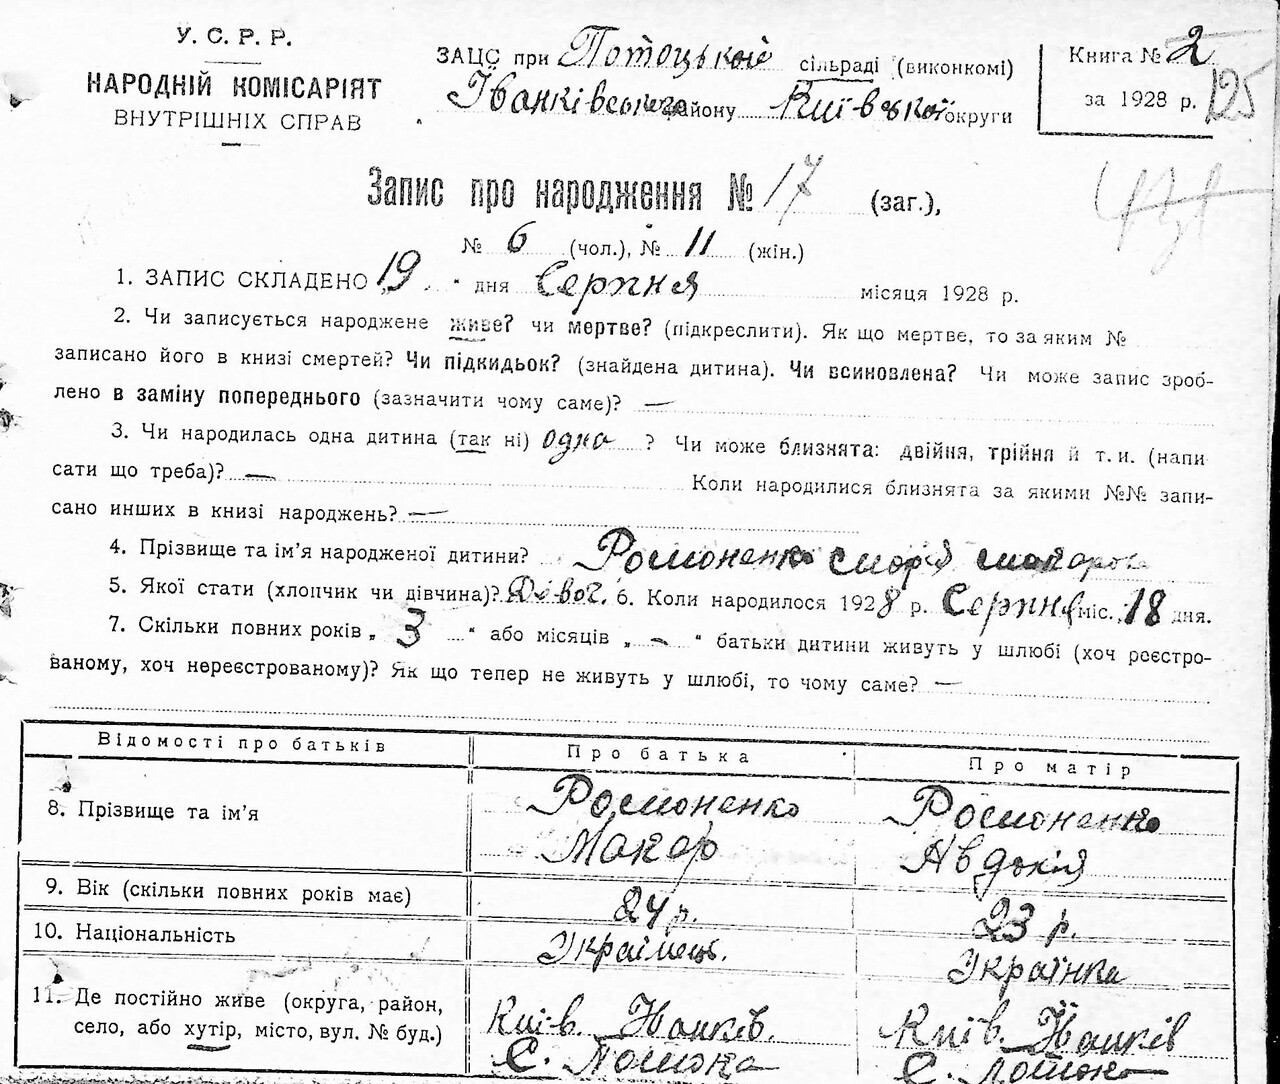 У. С. Р. Р.
НАРОДНІЙ КОМІСАРІЯТ
ВНУТРІШНІХ СПРАВ
ЗАЦС при Потоцькій сільраді (виконкомі)
Іванківського району Київської округи
Книга № 2
за 1928 р.
125
Запис про народження № 17 (заг.),
№ 6 (чол.), № 11 (жін.)
1. ЗАПИС СКЛАДЕНО 19 " дня Серпня місяця 1928 р.
2. Чи записується народжене живе? чи мертве? (підкреслити). Як що мертве, то за яким №
записано його в книзі смертей? Чи підкидьок? (знайдена дитина). Чи всиновлена? Чи може запис зроб-
лено в заміну попереднього (зазначити чому саме)? —
3. Чи народилась одна дитина (так ні) одна ? Чи може близнята: двійня, трійня й т. и. (напи
сати що треба)? — Коли народилися близнята за якими №№ запи-
сано инших в книзі народжень? —
4. Прізвище та ім'я народженої дитини?
5. Якої стати (хлопчик чи дівчина)? Дівоч. 6. Коли народилося 1928 р. Серпня міс. 18 дня.
7. Скільки повних років „ 3 " або місяців „ - " батьки дитини живуть у шлюбі (хоч реєстро-
ваному, хоч нереєстрованому)? Як що тепер не живуть у шлюбі, то чому саме? —
Відомості про батьків Про батька Про матір
8. Прізвище та ім'я
Макар Авдокія
9. Вік (скільки повних років має) 24 р. 23 р.
10. Національність Українець. Українка
11. Де постійно живе (округа, район,
село, або хутір, місто, вул. № буд.)
Київ. Київ.
с. с.